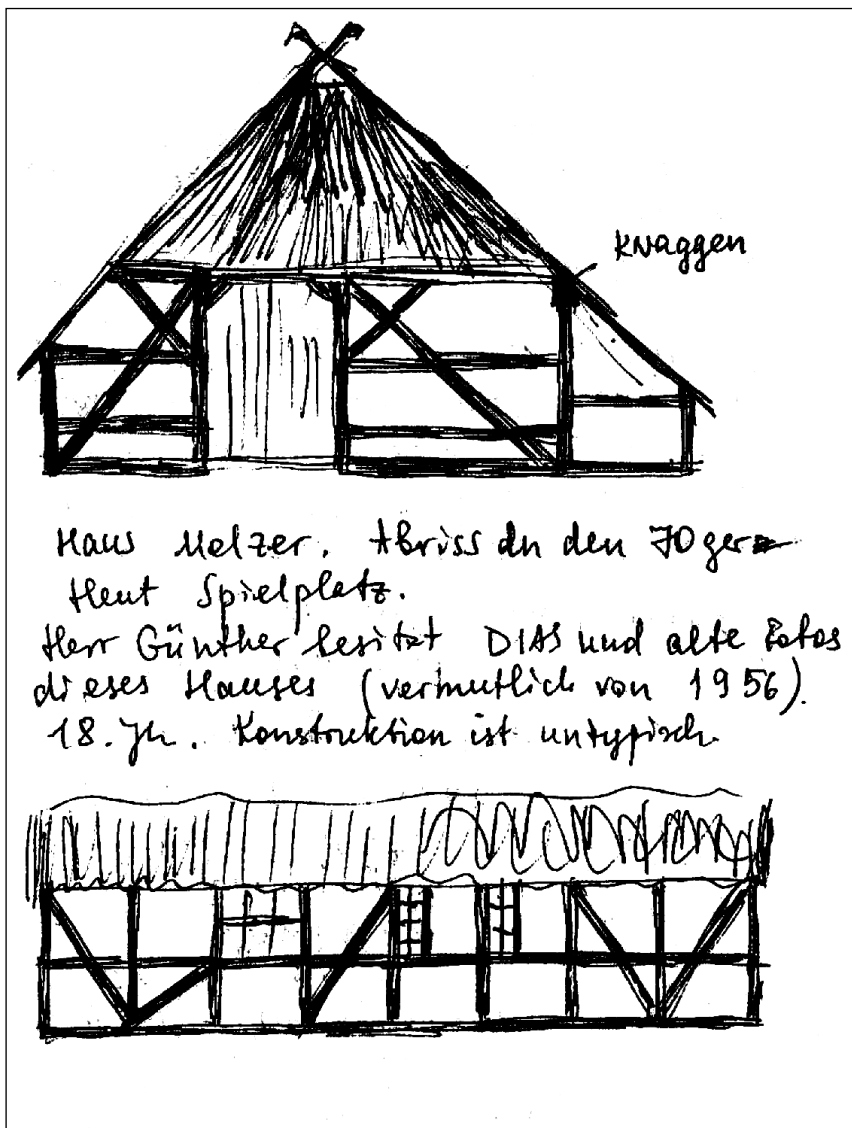 Knaggen
Haus Melzer. Abriss in den 70ger
Heut Spielplatz.
Herr Günther besitzt DIAS und alte Fotos
dieses Hauses (vermutlich von 1956).
18. Jh. Konstruktion ist untypisch